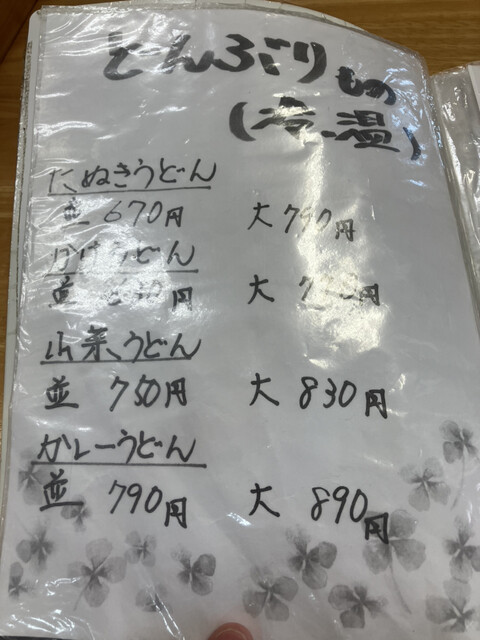 どんぶりもの
(冷、温)
たぬきうどん
並 670円 大 790円
かけうどん
並 円 大 円
山菜うどん
並 750円 大 830円
カレーうどん
並 790円 大 890円